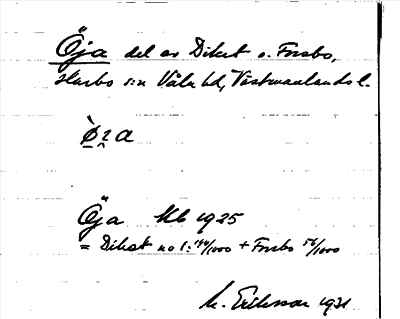 Öja del av Dikst o. Forsbo,
Harbo s:n Våla hd, Västmanlands l.
Öja Mb 1925
= Dikst no 1: /1000 + Forsbo /1000
M. Eriksson 1931